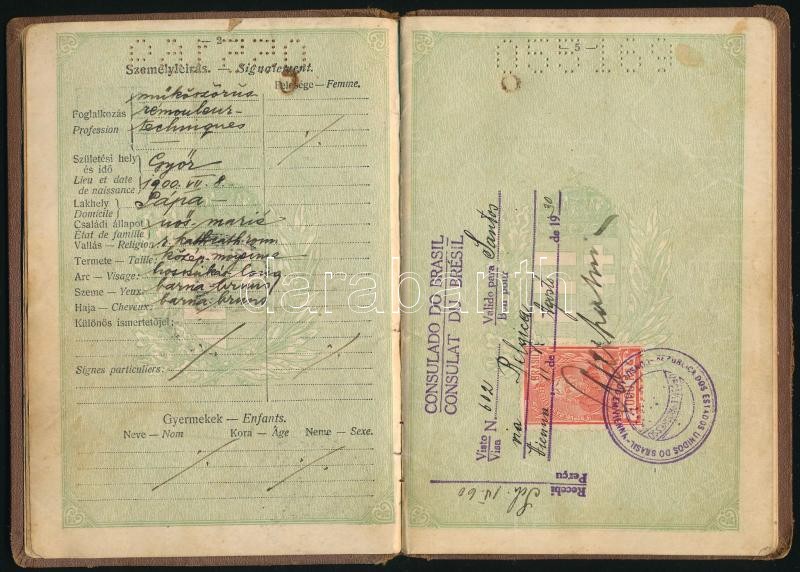 — 2 —
Személyleírás. — Signalement.
Felesége — Femme.
műköszörűs
Foglalkozás
rémouleur
Profession
techniques
Születési hely és idő
Győr
Lieu et date de naissance
1900. VII. 8.
Lakhely
Domicile
Pápa
Családi állapot
nős - marié
État de famille
Vallás — Religion
r. kath. cath. rom
Termete — Taille:
közép - moyenne
Arc — Visage:
hosszúkás long
Szeme — Yeux:
barna - bruns
Haja — Cheveux:
barna - bruns
Különös ismertetőjel:
Signes particuliers:
Gyermekek — Enfants.
Neve — Nom Kora — Âge Neme — Sexe.
— 5 —
085168
CONSULADO DO BRASIL
CONSULAT DU BRÉSIL
Visto
Visa
N. 602
Valido para
Bon pour
Santos
via Belgica
Vienna
de
de 1930
Recebi
Perçu
Sch. 15.60
REPUBLICA DOS ESTADOS UNIDOS DO BRASIL
darabanth.com